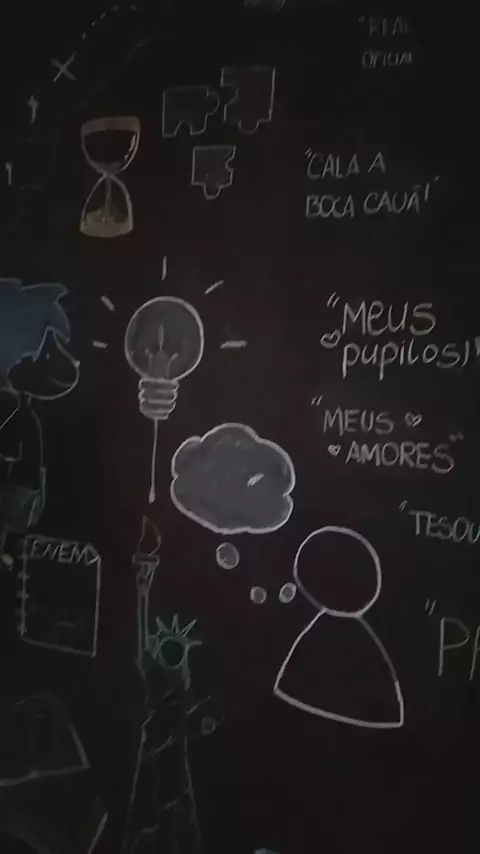 "REAL
OFICIAL"
"CALA A
BOCA CAUÃ!"
"MEUS
pupilos)"
"MEUS
AMORES"
ENEM